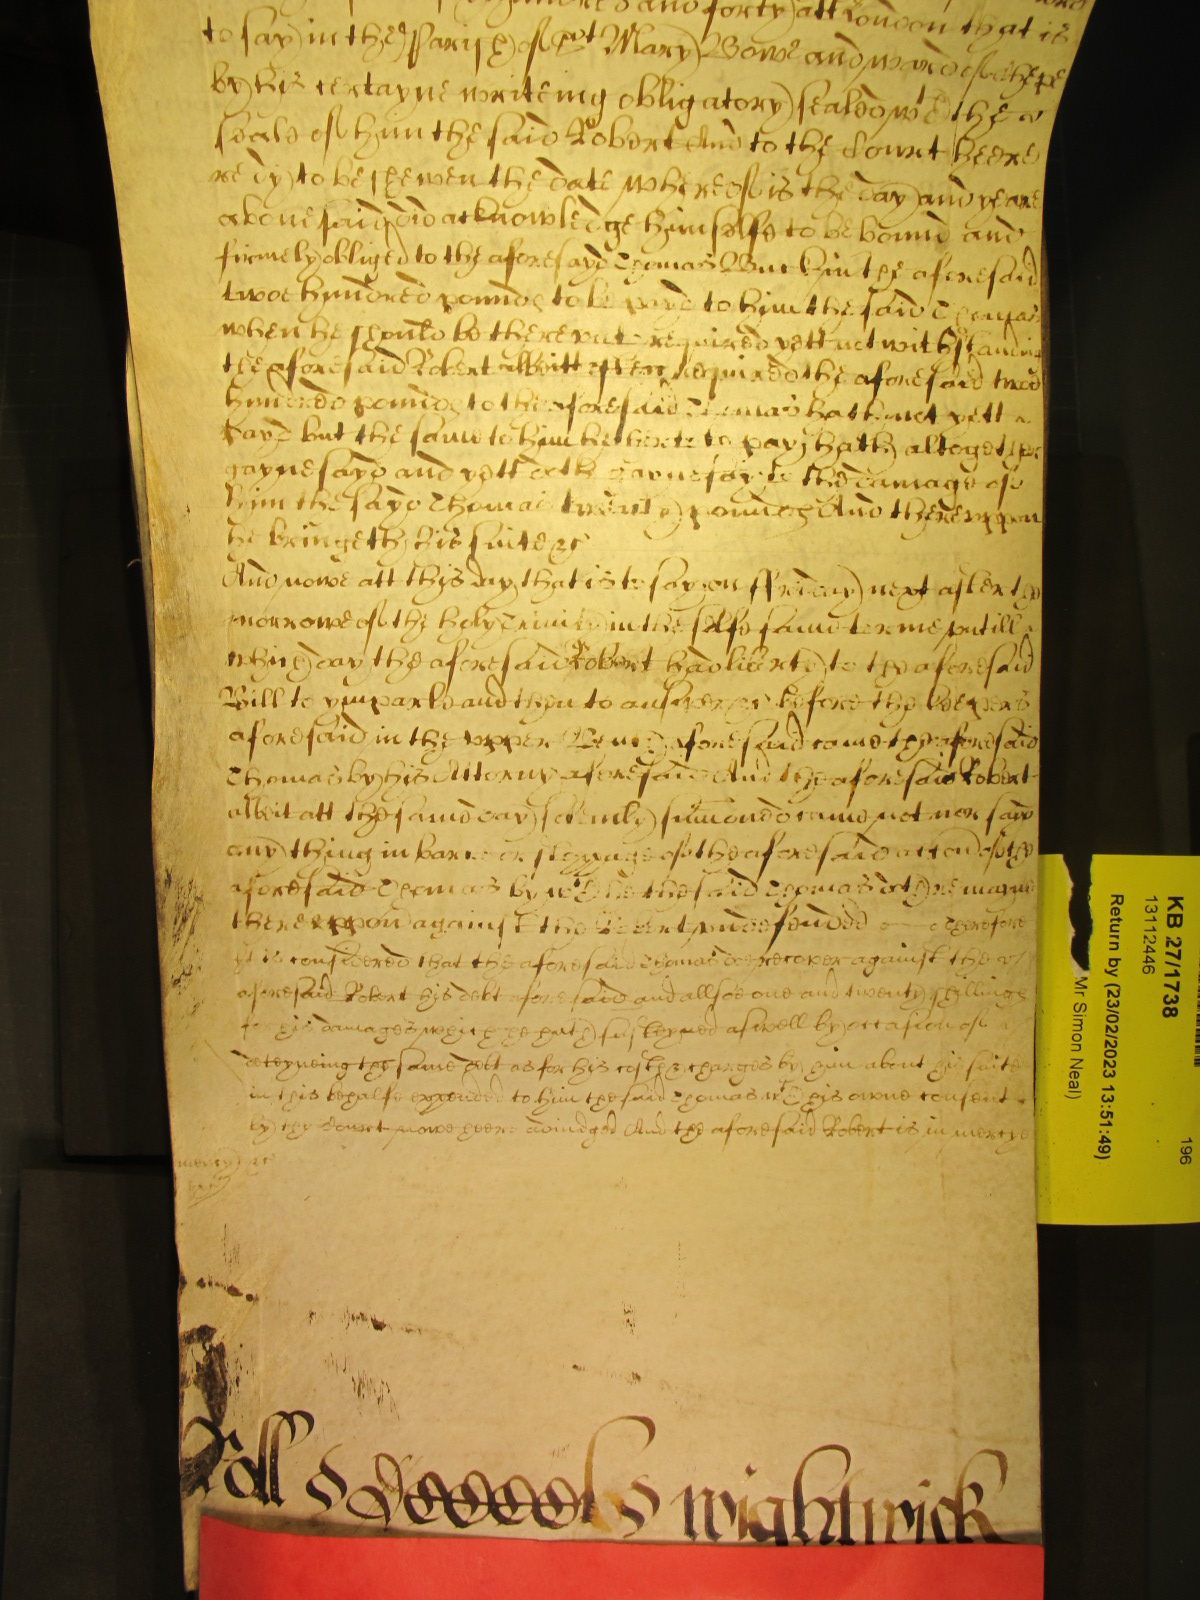 and forty att London that is
to say in the Parish of St Mary Bowe and ward of Chepe
by his certayne writeing obligatory sealed wth the
seale of him the said Robert And to the Court heere
redy to be shewen the date whereof is the day and yeare
abovesaid did acknowledge himselfe to be bound and
firmely obliged to the aforesayd Thomas Buckin the aforesaid
twoe hundred pounds to be payd to him the said Thomas
when he should be thereunto required yett notwithstanding
the aforesaid Robert albeitt often required the aforesaid twoe
hundred pounds to the aforesaid Thomas hath not yett
payd but the same to him hitherto to pay hath altogether
gaynesayd and yett doth gaynesay to the damage of
him the sayd Thomas twenty pounds And thereuppon
he bringeth his suite &c
And nowe att this day that is to say on ffriday next after the
morrowe of the holy Trinity in the selfe same terme untill
which day the aforesaid Robert had liberty to the aforesaid
Bill to imparle and then to answer &c before the Keepers
aforesaid in the upper Bench aforesaid came the aforesaid
Thomas by his Attorny aforesaid And the aforesaid Robert
albeit att the same day solemly sumoned came not nor said
any thing in barre or stoppage of the aforesaid accon of the
aforesaid Thomas by wch he the said Thomas
thereuppon against the Robert undefended Therefore
it is considered that the aforesaid Thomas doe recover against the
aforesaid Robert his debt aforesaid and allsoe one and twenty shillings
for his damages which he hath susteyned aswell by occasion of
deteyneing the same debt as for his costs & charges by him about his suite
in this behalfe expended to him the said Thomas wth his owne consent
by the Court nowe heere adiudged And the aforesaid Robert is in mercye
mercy &c
Roll
wightwick
KB 27/1738
13112446
Return by (23/02/2023 13:51:49)
Mr Simon Neal)
196